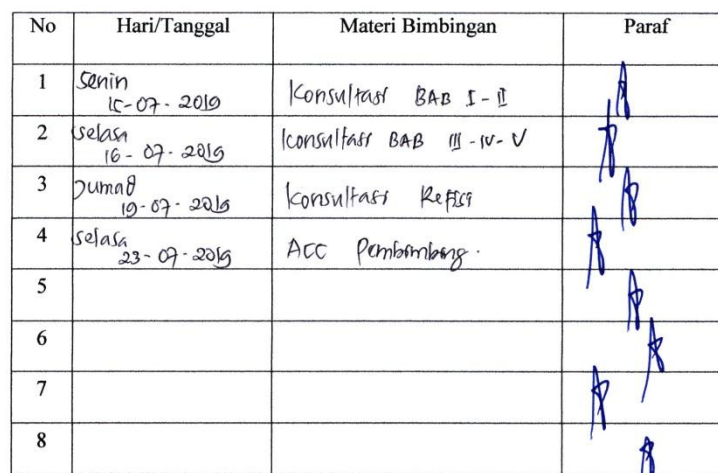 No Hari/Tanggal Materi Bimbingan Paraf
1 Senin
15-07-2019 Konsultasi BAB I-II
2 Selasa
16-07-2019 Konsultasi BAB III-IV-V
3 Jumat
19-07-2019 Konsultasi Refisi
4 Selasa
23-07-2019 ACC Pembimbing.
5
6
7
8